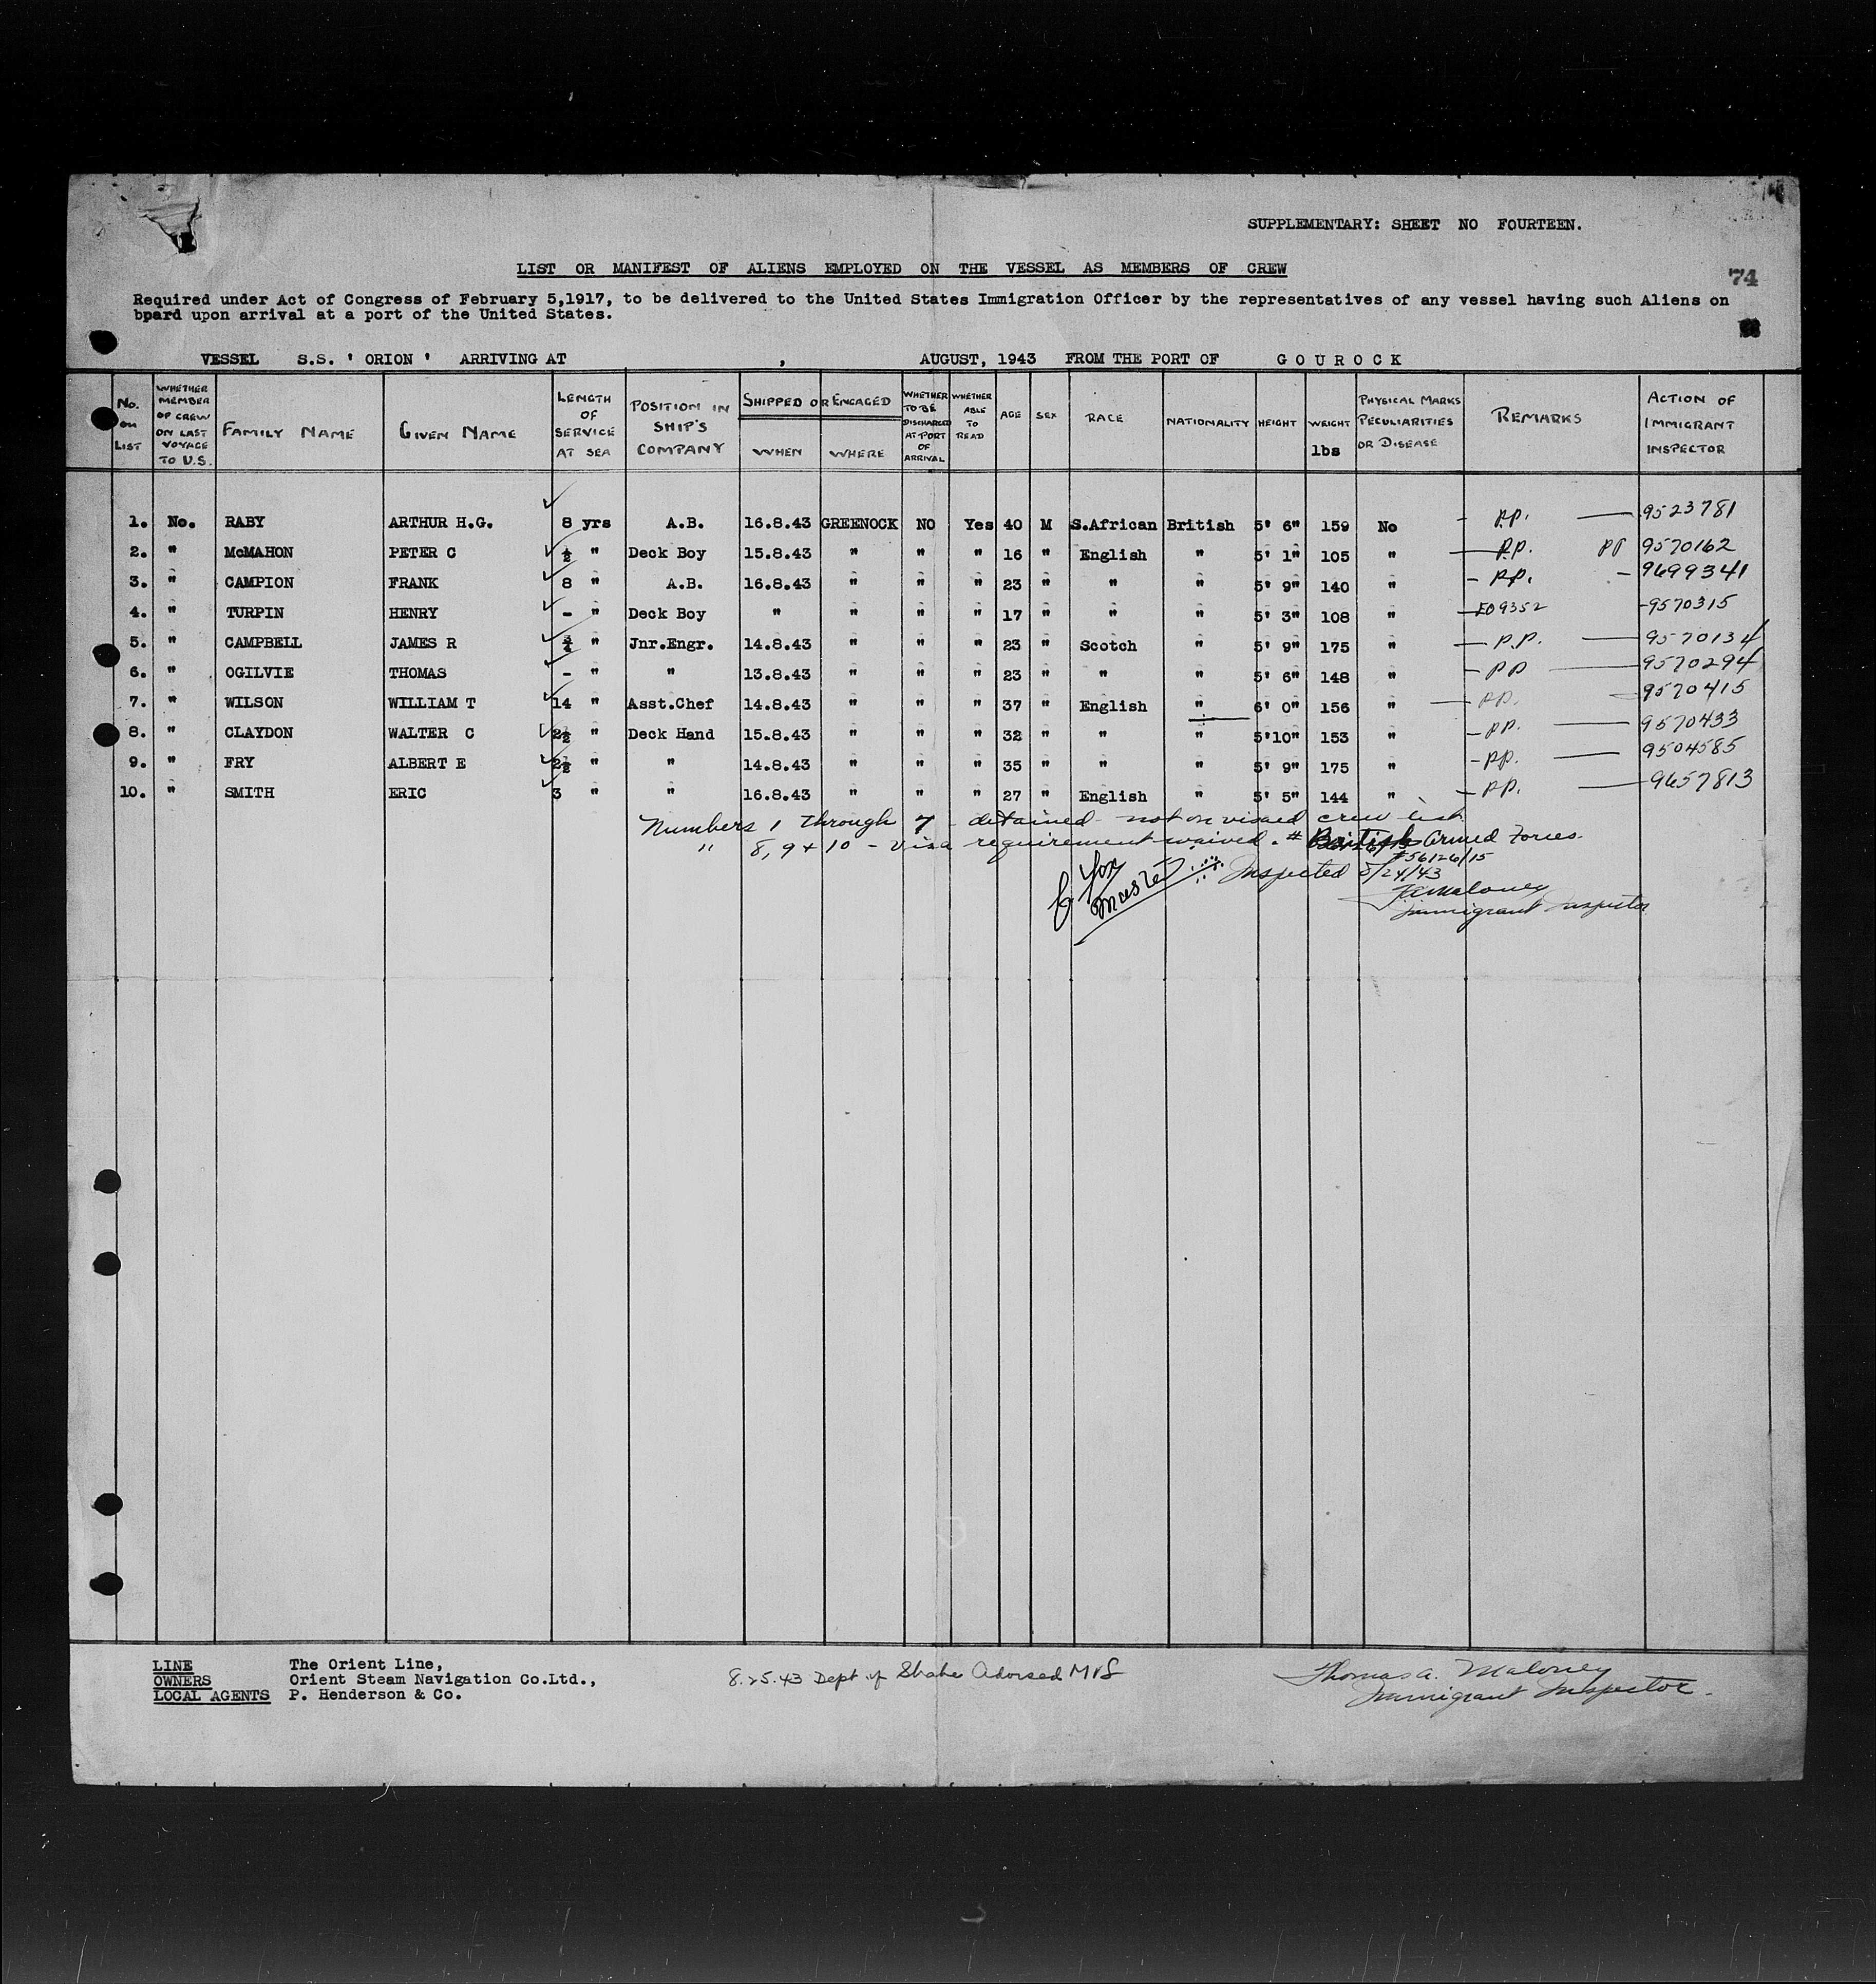 SUPPLEMENTARY: SHEET NO FOURTEEN.
LIST OR MANIFEST OF ALIENS EMPLOYED ON THE VESSEL AS MEMBERS OF CREW
74
Required under Act of Congress of February 5,1917, to be delivered to the United States Immigration Officer by the representatives of any vessel having such Aliens on
bpard upon arrival at a port of the United States.
VESSEL S.S. ' ORION ' ARRIVING AT , AUGUST, 1943 FROM THE PORT OF G O U R O C K
No. on LIST | WHETHER MEMBER OF CREW ON LAST VOYAGE TO U.S. | FAMILY NAME | GIVEN NAME | LENGTH OF SERVICE AT SEA | POSITION IN SHIP'S COMPANY | SHIPPED OR ENGAGED WHEN WHERE | WHETHER TO BE DISCHARGED AT PORT OF ARRIVAL | WHETHER ABLE TO READ | AGE | SEX | RACE | NATIONALITY | HEIGHT | WEIGHT lbs | PHYSICAL MARKS PECULIARITIES OR DISEASE | REMARKS | ACTION OF IMMIGRANT INSPECTOR
1. No. RABY ARTHUR H.G. 8 yrs A.B. 16.8.43 GREENOCK NO Yes 40 M S.African British 5' 6" 159 No - P.P. — 9523781
2. " McMAHON PETER C ½ " Deck Boy 15.8.43 " " " 16 " English " 5' 1" 105 " — P.P. PP 9570162
3. " CAMPION FRANK 8 " A.B. 16.8.43 " " " 23 " " " 5' 9" 140 " - P.P. - 9699341
4. " TURPIN HENRY - " Deck Boy " " " " 17 " " " 5' 3" 108 " — EO9352 - 9570315
5. " CAMPBELL JAMES R ¾ " Jnr.Engr. 14.8.43 " " " 23 " Scotch " 5' 9" 175 " — P.P. — 9570134
6. " OGILVIE THOMAS - " " 13.8.43 " " " 23 " " " 5' 6" 148 " - PP — 9570294
7. " WILSON WILLIAM T 14 " Asst.Chef 14.8.43 " " " 37 " English " 6' 0" 156 " — PP. - 9570415
8. " CLAYDON WALTER C 2½ " Deck Hand 15.8.43 " " " 32 " " " 5'10" 153 " - PP. — 9570433
9. " FRY ALBERT E 2½ " " 14.8.43 " " " 35 " " " 5' 9" 175 " - PP. — 9504585
10. " SMITH ERIC 3 " " 16.8.43 " " " 27 " English " 5' 5" 144 " - PP. — 9657813
Numbers 1 through 7 - detained - not on visaed crew list.
" 8, 9 + 10 - visa requirement waived. # British Armed Forces
# 56126/15
E Fox
Master
Inspected 8/24/43
T.A. Maloney
Immigrant Inspector
LINE The Orient Line,
OWNERS Orient Steam Navigation Co.Ltd.,
LOCAL AGENTS P. Henderson & Co.
8.25.43 Dept of State Advised MVS
Thomas A. Maloney
Immigrant Inspector.